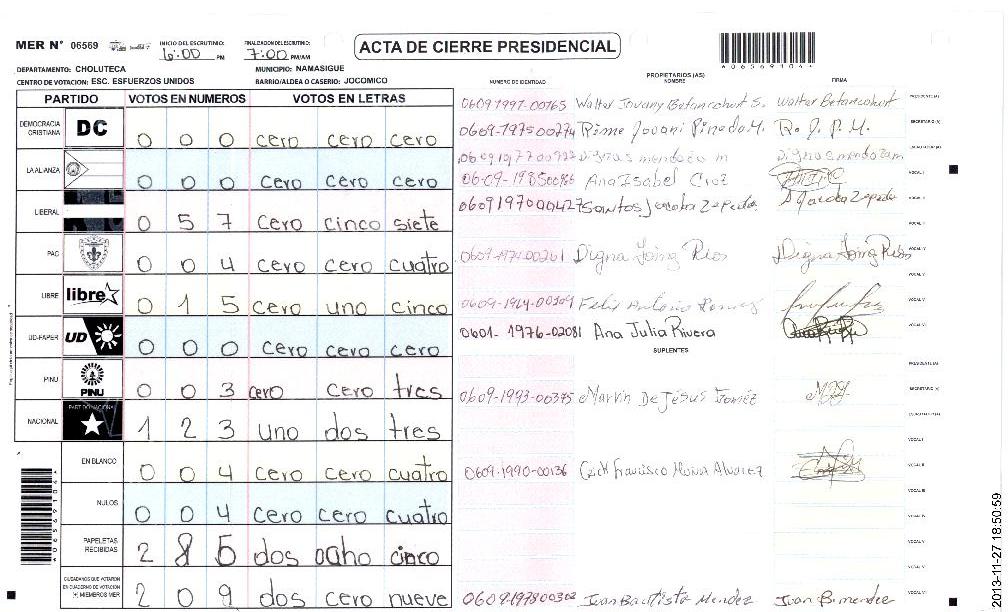 MER N° 06569
INICIO DEL ESCRUTINIO: 6:00 PM
FINALIZACION DEL ESCRUTINIO: 7:00 PM/AM
ACTA DE CIERRE PRESIDENCIAL
A06569104
DEPARTAMENTO: CHOLUTECA
MUNICIPIO: NAMASIGUE
CENTRO DE VOTACION: ESC. ESFUERZOS UNIDOS
BARRIO/ALDEA O CASERIO: JOCOMICO
PARTIDO VOTOS EN NUMEROS VOTOS EN LETRAS
DEMOCRACIA CRISTIANA DC 0 0 0 cero cero cero
LA ALIANZA 0 0 0 cero cero cero
LIBERAL 0 5 7 cero cinco siete
PAC 0 0 4 cero cero cuatro
LIBRE libre 0 1 5 cero uno cinco
UD-FAPER UD 0 0 0 cero cero cero
PINU PINU 0 0 3 cero cero tres
NACIONAL PARTIDO NACIONAL 1 2 3 uno dos tres
EN BLANCO 0 0 4 cero cero cuatro
NULOS 0 0 4 cero cero cuatro
PAPELETAS RECIBIDAS 2 8 5 dos ocho cinco
CIUDADANOS QUE VOTARON EN CUADERNO DE VOTACION (+) MIEMBROS MER 2 0 9 dos cero nueve
NUMERO DE IDENTIDAD
PROPIETARIOS (AS)
NOMBRE
FIRMA
0609 1997-00765 Walter Jovany Betancohurt S. Walter Betancohurt
0609-197500274 Rime Jovani Pineda M. R. J. P. M.
Dignas mendoza m Dignas mendozam
06-09-198500986 Ana Isabel Cruz
0609197000427 Santos Zepeda
Digna Rios Digna Rios
0609-1964-00109 Felix Antonio
0601-1976-02081 Ana Julia Rivera
SUPLENTES
0609-1993-00375 Marvin De Jesus
0609-1990-00136 Francisco Alvarez
0609197800302 Juan Bautista Mendez Juan B. mendez
A06569104
2013-11-27 18:50:59